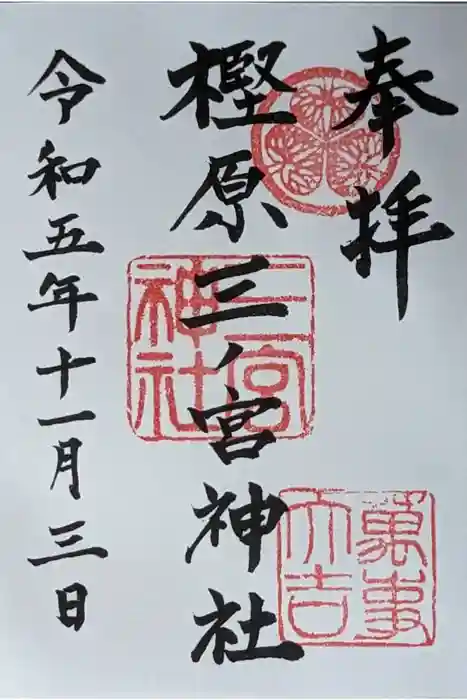 奉拝
樫原三ノ宮神社
令和五年十一月三日
三宮神社
萬事大吉